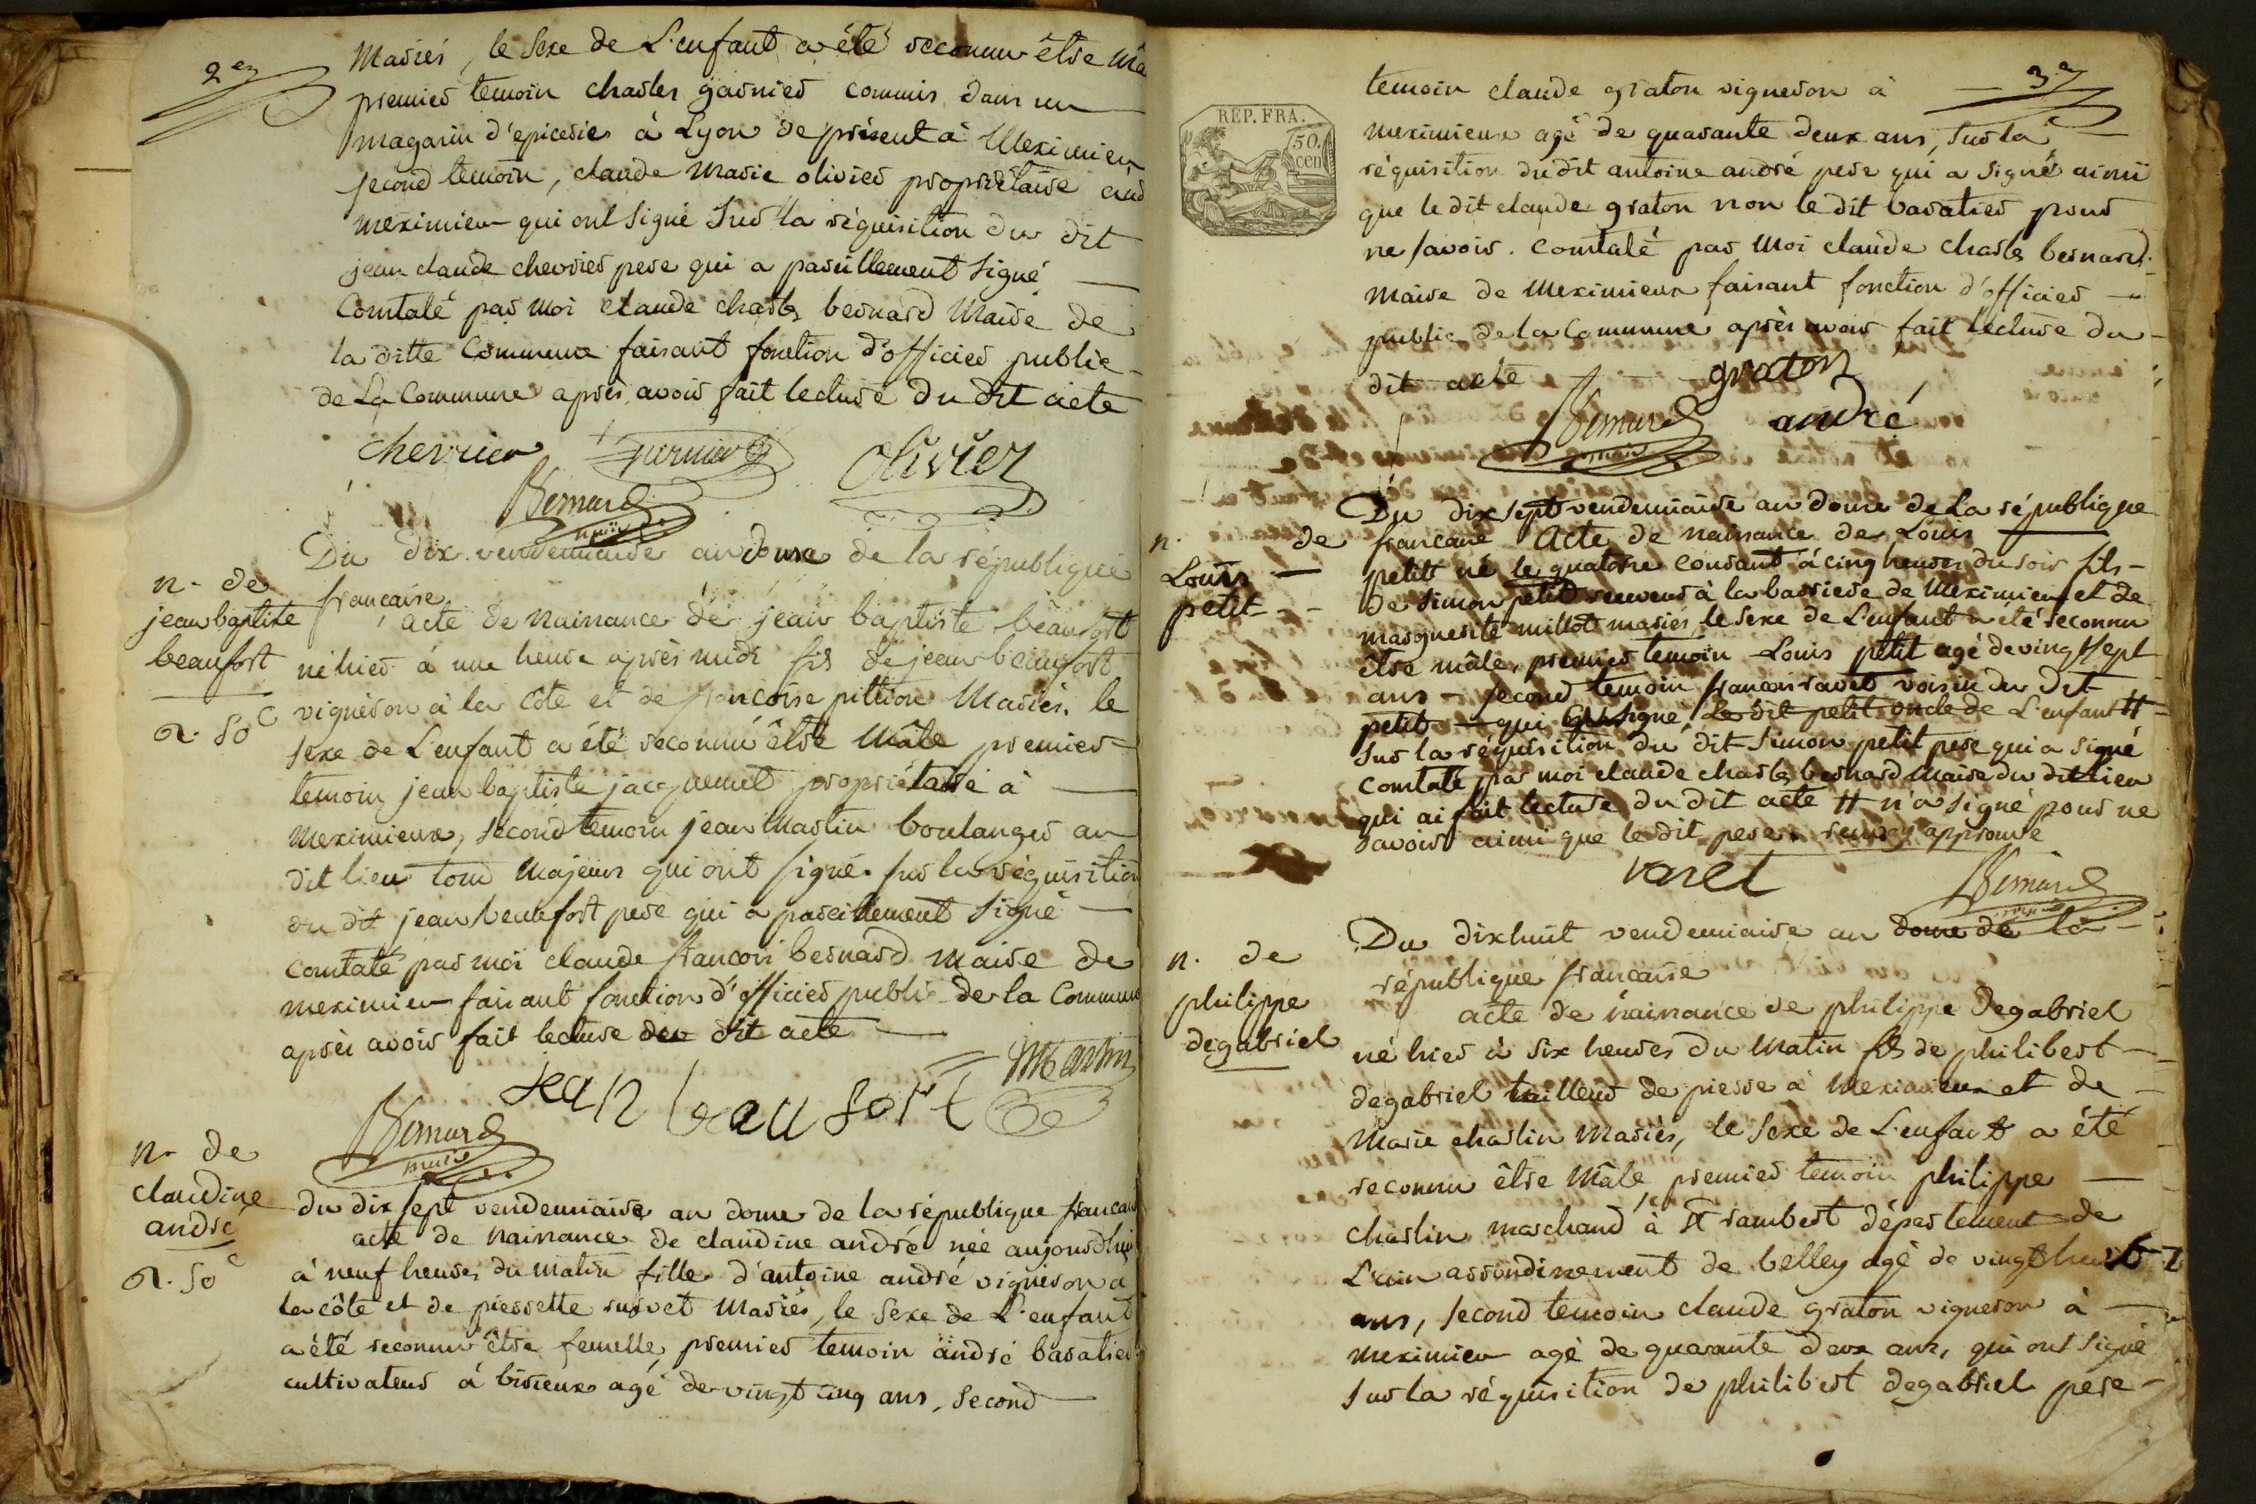 2.e
Mariés, le Sexe de L'enfant a été reconnu être Mâ
premier temoin charles garnier commis dans un
magasin d'epicerie à Lyon de présent à Meximieu
second temoin, claude Marie olivier proprietaire au d
meximieu qui ont signé Sur la réquisition du dit
jean claude chevrier pere qui a pareillement signé
Constaté par moi claude charles bernard Maire de
la ditte Commune faisant fonction d'officier public
de La Commune après avoir fait lecture du dit acte
chevrier garnier olivier
Bernard
maire
Du dix vendemiaire an douze de la république
française
n. de
jean baptiste
beaufort
r. 50 c
acte de naissance de jean baptiste beaufort
né hier à une heure après midi fils de jean beaufort
vigneron à la côte et de françoise pittion Mariés. le
sexe de L'enfant a été reconnu être Mâle premier
temoin jean baptiste jacquemet propriétaire à
Meximieux, second temoin jean Martin boulanger au
dit lieu tous Majeurs qui ont signé. sur la réquisition
du dit jean beaufort pere qui a pareillement signé
Constaté par moi claude francois bernard maire de
meximieu faisant fonction d'officier public de la Commune
après avoir fait lecture du dit acte
Jean beaufort Martin
Bernard
maire
n. de
claudine
andré
r. 50 c
du dix sept vendemiaire an douze de la république francais
acte de naissance de claudine andré née aujourd'hui
à neuf heures du matin fille d'antoine andré vigneron à
la côte et de pierrette survet Mariés, le Sexe de L'enfant
a été reconnu être femelle, premier temoin andré baratier
cultivateur à birieux agé de vingt cinq ans, Second
3.e
REP. FRA.
50.
cen
temoin claude graton vigneron à
meximieux agé de quarante deux ans, sur la
réquisition du dit antoine andré pere qui a signé ainsi
que le dit claude graton non le dit baratier pour
ne savoir. Constaté par moi claude charles bernard
maire de meximieux faisant fonction d'officier
public de la Commune après avoir fait lecture du
dit acte
graton
Bernard andré
maire
n. de
Louis
petit
Du dix sept vendemiaire an douze de la république
francaise Acte de naissance de Louis
petit né le quatorze courant à cinq heures du soir fils
de simon petit receveur à la barriere de Meximieu et de
marguerite millot mariés, le sexe de L'enfant a été reconnu
être mâle, premier temoin Louis petit agé de vingt sept
ans second temoin francois ravet voisin du dit
petit qui a signé Le dit petit oncle de L'enfant #
sur la réquisition du dit simon petit pere qui a signé
Constaté par moi claude charles bernard maire du dit lieu
qui ai fait lecture du dit acte # n'a signé pour ne
savoir ainsi que le dit pere. renvoy approuvé
varet
Bernard
maire
n. de
philippe
degabriel
Du dix huit vendemiaire an douze de la
république francaise
acte de naissance de philippe degabriel
né hier à six heures du Matin fils de philibert
degabriel tailleur de pierre à meximieux et de
Marie charlin Mariés, le sexe de L'enfant a été
reconnu être Mâle, premier temoin philippe
charlin marchand à St rambert département de
L'ain arrondissement de belley agé de vingt huit
ans, second temoin claude graton vigneron à
meximieu agé de quarante deux ans, qui ont signé
sur la réquisition de philibert degabriel pere